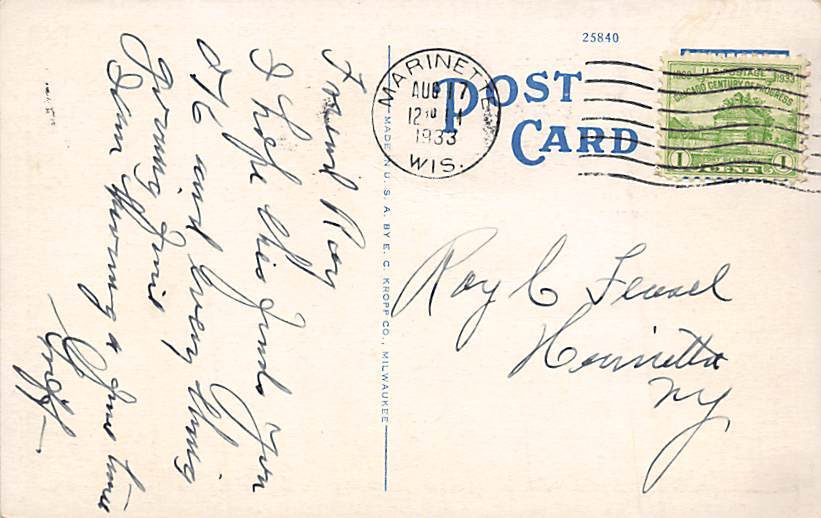 25840
POST
CARD
MARINETTE
AUG 17
12
1933
WIS.
U.S. POSTAGE 1933
CHICAGO CENTURY OF PROGRESS
1 CENT 1
MADE IN U.S.A. BY E. C. KROPP CO., MILWAUKEE
Friend Roy
I hope this finds you
OK and every thing
going fine
I am having a fine time
Roy C
Henrietta
NY